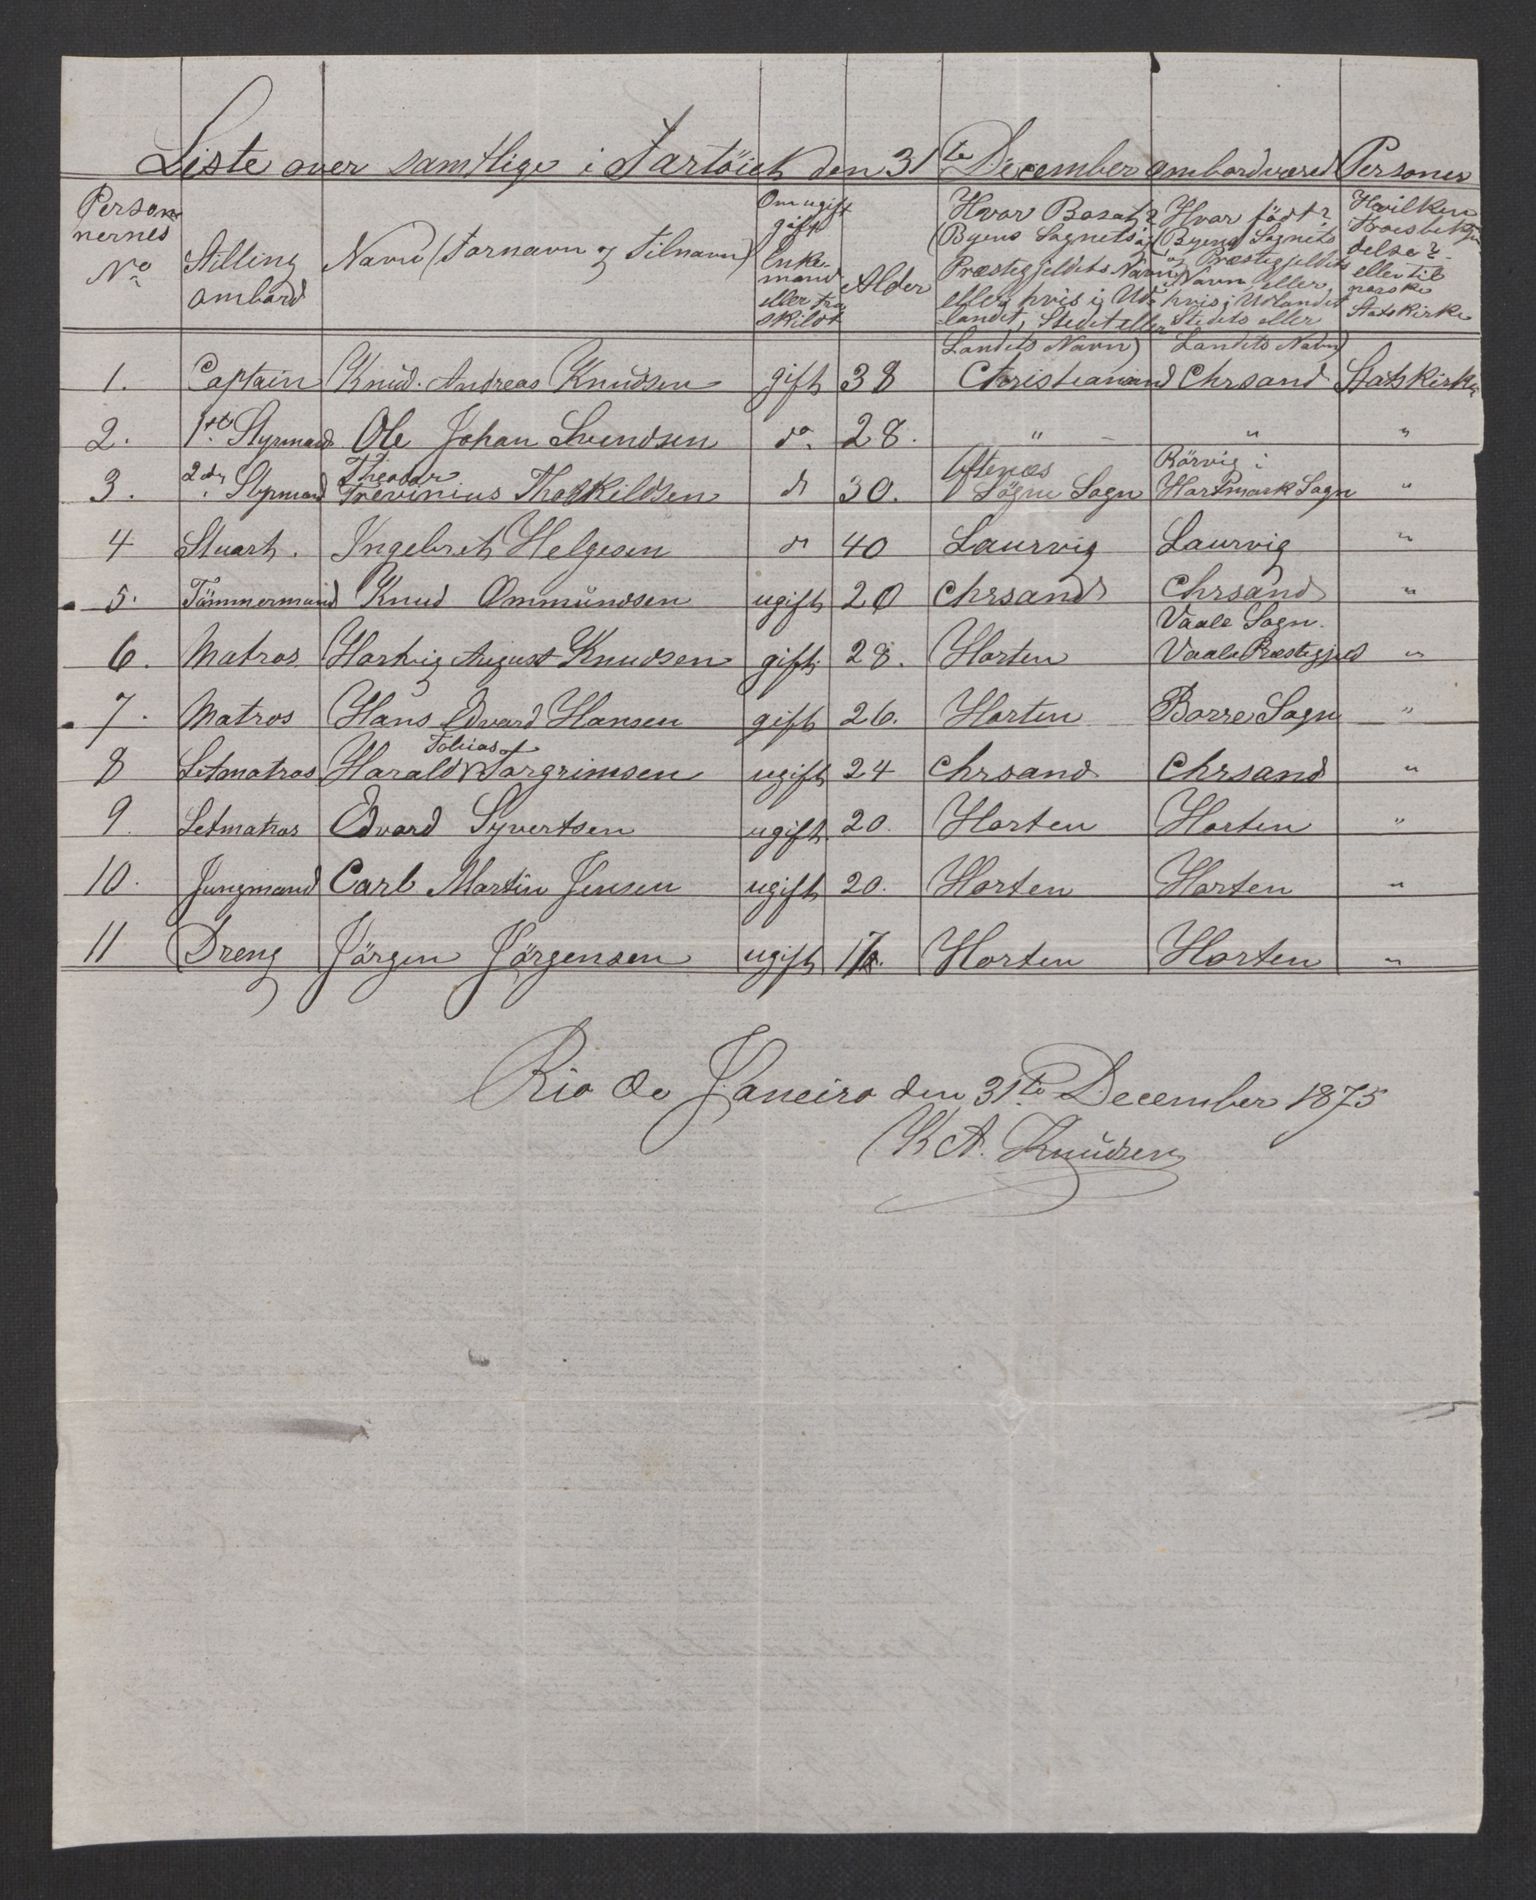 Liste over samtlige i Fartöiet den 31te December ombordværed Personer
Person nernes No | Stilling ombord | Navn (Fornavn og Tilnavn) | Om ugift gift Enke- mand eller fra skilt | Alder | Hvor Bosat? (Byens Sognets og Præstegjeldets Navn eller hvis i Ud- landet, Stedet eller Landets Navn) | Hvor födt? (Byens Sognets og Præstegjeldets Navn eller, hvis i Udlandet Stedets eller Landets Navn) | Hvilken Troesbekjen delse? eller til norske Statskirke
1. | Captain | Knud. Andreas Knudsen | gift | 38 | Christiansand | Chrsand | Statskirke
2. | 1ste Styrmand | Ole Johan Svendsen | do. | 28. | " | " | "
3. | 2den Styrmand | Theodor Severinius Thorkildsen | do | 30. | Aftenæs Sögne Sogn | Rörvig i Hartmark Sogn | "
4 | Stuart. | Ingebreth Helgesen | do | 40 | Laurvig | Laurvig | "
5. | Tömmermand | Knud Ommundsen | ugift | 20 | Chrsand | Chrsand | "
6. | Matros | Hartvig August Knudsen | gift. | 28. | Horten | Vaale Sogn. Vaale Præstegjeld | "
7. | Matros | Hans Edvard Hansen | gift | 26. | Horten | Borre Sogn | "
8 | Letmatros | Harald Tobias Torgrimsen | ugift | 24 | Chrsand | Chrsand | "
9. | Letmatros | Edvard Syvertsen | ugift. | 20. | Horten | Horten | "
10. | Jungmand | Carl Martin Jensen | ugift | 20. | Horten | Horten | "
11 | Dreng | Jörgen Jörgensen | ugift | 17. | Horten | Horten | "
Rio de Janeiro den 31te December 1875
K A. Knudsen